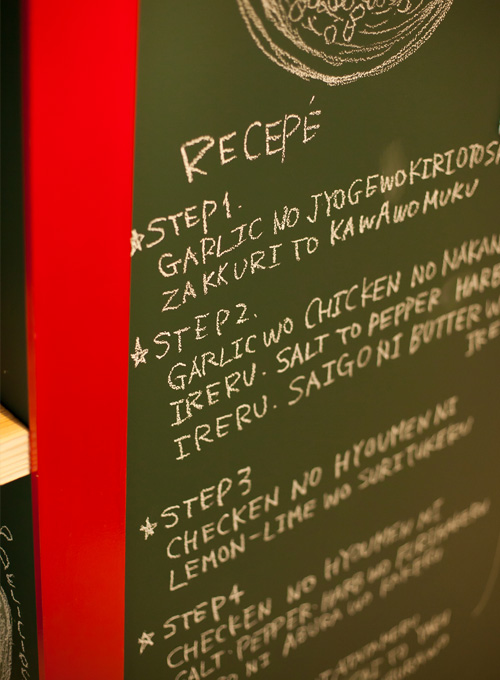 RECEPÉ
STEP1.
GARLIC NO JYOGEWOKIRIOTOSA
ZAKKURI TO KAWAWOMUKU
STEP2.
GARLIC WO CHICKEN NO NAKAN
IRERU. SALT TO PEPPER HARB
IRERU. SAIGO NI BUTTER W
IRE
STEP3
CHECKEN NO HYOUMEN NI
LEMON-LIME WO SURITUKERU
STEP4
CHECKEN NO HYOUMEN NI
SALT. PEPPER. HARB WO
NI ABURA WO